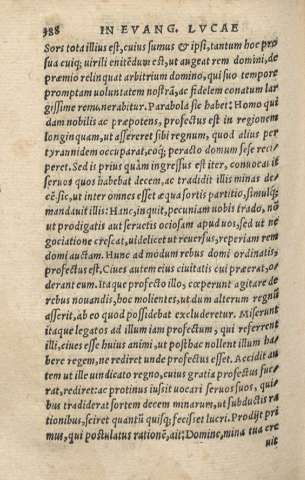 388 IN EVANG. LVCAE
Sors tota illius est, cuius sumus & ipsi, tantum hoc pro
sua cuiq; uirili enitēdum est, ut augeat rem domini, de
præmio relinquat arbitrium domino, qui suo tempore
promptam uoluntatem nostrā, ac fidelem conatum lar
gissime remunerabitur. Parabola sic habet: Homo qui
dam nobilis ac præpotens, profectus est in regionem
longinquam, ut assereret sibi regnum, quod alius per
tyrannidem occuparat, eoq; peracto domum sese reci
peret. Sed is prius quàm ingressus est iter, conuocat it
seruos quos habebat decem, ac tradidit illis minas de
cē sic, ut inter omnes esset æqua sortis partitio, simulq;
mandauit illis: Hanc, inquit, pecuniam uobis trado, nō
ut prodigatis aut seruetis ociosam apud uos, sed ut ne
gociatione crescat, uidelicet ut reuersus, reperiam rem
domi auctam. Hunc ad modum rebus domi ordinatis,
profectus est. Ciues autem eius ciuitatis cui præerat, o
derant eum. Itaque profecto illo, cœperunt agitare de
rebus nouandis, hoc molientes, ut dum alterum regnū
asserit, ab eo quod possidebat excluderetur. Miserunt
itaque legatos ad illum iam profectum, qui referrent
illi, ciues esse huius animi, ut posthac nollent illum ha
bere regem, ne rediret unde profectus esset. Accidit au
tem ut ille uindicato regno, cuius gratia profectus fue
rat, rediret: ac protinus iussit uocari seruos suos, qui
bus tradiderat sortem decem minarum, ut subductis ra
tionibus, sciret quantū quisq; fecisset lucri. Prodijt pri
mus, qui postulatus rationē, ait: Domine, mina tua cre
uit